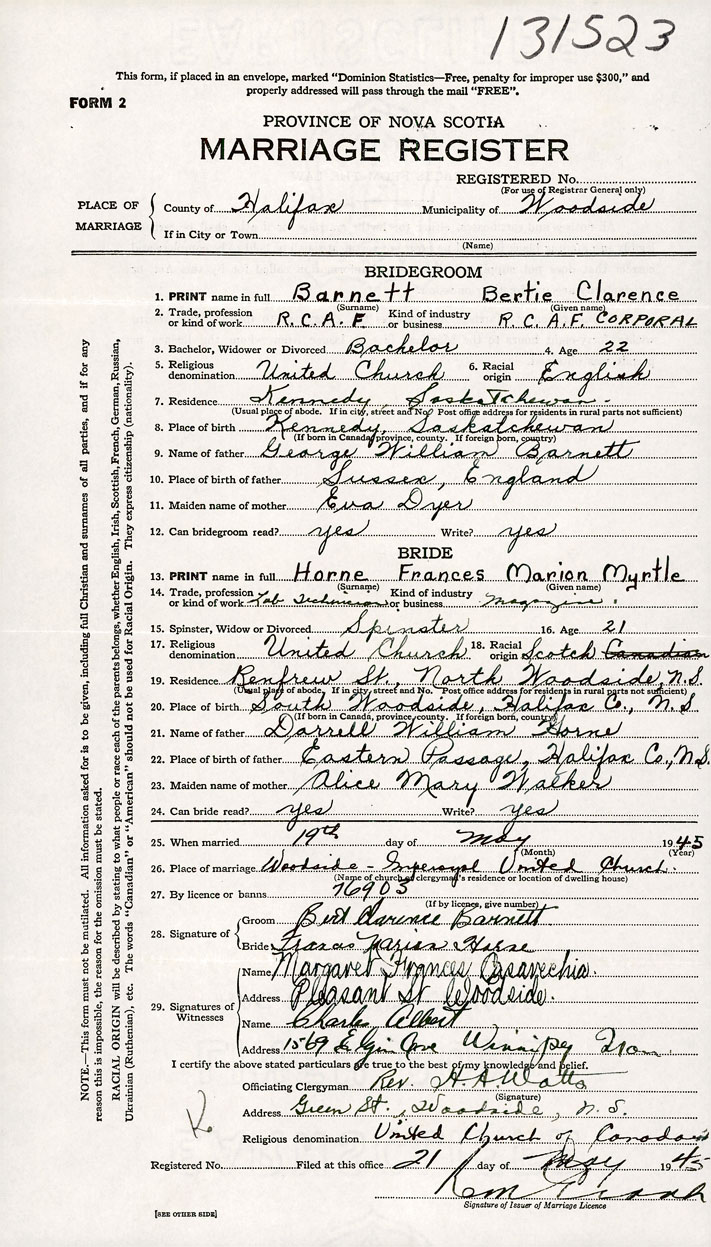 131523
This form, if placed in an envelope, marked "Dominion Statistics—Free, penalty for improper use $300," and
properly addressed will pass through the mail "FREE".
FORM 2
PROVINCE OF NOVA SCOTIA
MARRIAGE REGISTER
REGISTERED No.
(For use of Registrar General only)
PLACE OF MARRIAGE
County of Halifax Municipality of Woodside
If in City or Town
(Name)
BRIDEGROOM
1. PRINT name in full Barnett Bertie Clarence
(Surname) (Given name)
2. Trade, profession or kind of work R.C.A.F Kind of industry or business R.C.A.F. CORPORAL
3. Bachelor, Widower or Divorced Bachelor 4. Age 22
5. Religious denomination United Church 6. Racial origin English
7. Residence Kennedy, Saskatchewan.
(Usual place of abode. If in city, street and No. Post office address for residents in rural parts not sufficient)
8. Place of birth Kennedy, Saskatchewan
(If born in Canada, province, county. If foreign born, country)
9. Name of father George William Barnett
10. Place of birth of father Sussex, England
11. Maiden name of mother Eva Dyer
12. Can bridegroom read? yes Write? yes
BRIDE
13. PRINT name in full Horne Frances Marion Myrtle
(Surname) (Given name)
14. Trade, profession or kind of work Lab Technician Kind of industry or business Magazine.
15. Spinster, Widow or Divorced Spinster 16. Age 21
17. Religious denomination United Church 18. Racial origin Scotch Canadian
19. Residence Renfrew St., North Woodside, N.S.
(Usual place of abode. If in city, street and No. Post office address for residents in rural parts not sufficient)
20. Place of birth South Woodside, Halifax Co., N.S
(If born in Canada, province, county. If foreign born, country)
21. Name of father Darrell William Horne
22. Place of birth of father Eastern Passage, Halifax Co., N.S.
23. Maiden name of mother Alice Mary Walker
24. Can bride read? yes Write? yes
25. When married 19th day of May 1945
(Month) (Year)
26. Place of marriage Woodside - Imperoyal United Church.
(Name of church or clergyman's residence or location of dwelling house)
27. By licence or banns 76903
(If by licence, give number)
28. Signature of
Groom Bert Clarence Barnett
Bride Frances Marion Horne
29. Signatures of Witnesses
Name Margaret Frances
Address Pleasant St Woodside.
Name Charles Albert
Address 1569 Elgin Ave Winnipeg Man
I certify the above stated particulars are true to the best of my knowledge and belief.
Officiating Clergyman Rev. H A Watts
(Signature)
Address Green St., Woodside, N.S.
Religious denomination United Church of Canada
Registered No. Filed at this office 21 day of May 1945
Signature of Issuer of Marriage Licence
[SEE OTHER SIDE]
NOTE.—This form must not be mutilated. All information asked for is to be given, including full Christian and surnames of all parties, and if for any
reason this is impossible, the reason for the omission must be stated.
RACIAL ORIGIN will be described by stating to what people or race each of the parents belongs, whether English, Irish, Scottish, French, German, Russian,
Ukrainian (Ruthenian), etc. The words "Canadian" or "American" should not be used for Racial Origin. They express citizenship (nationality).